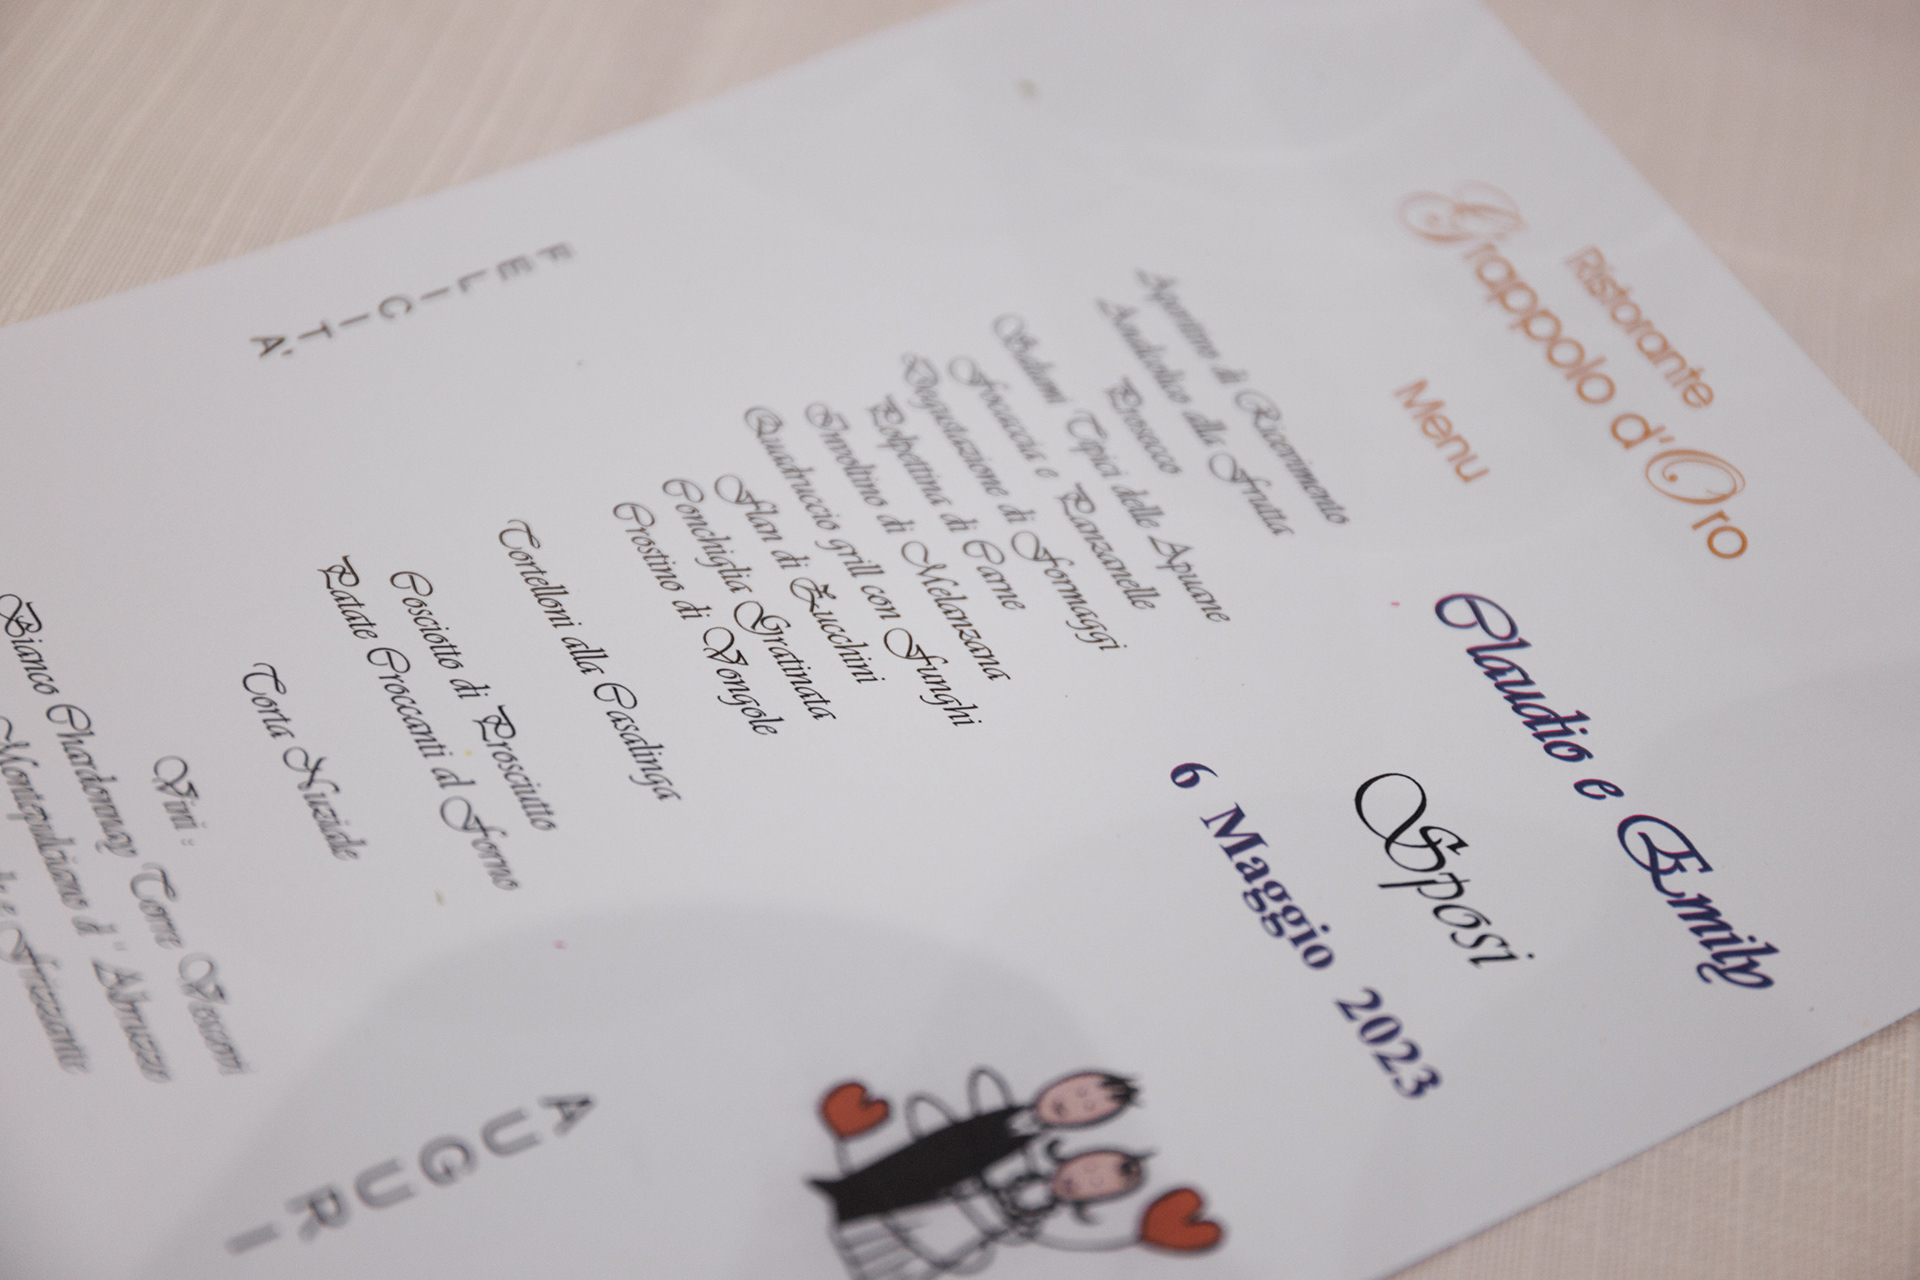 Ristorante
Grappolo d'Oro
Menu
Claudio e Emily
Sposi
6 Maggio 2023
Aperitivo di Ricevimento
Analcolico alla Frutta
Prosecco
Salumi Tipici delle Apuane
Focaccia e Panzanelle
Degustazione di Formaggi
Polpettina di Carne
Involtino di Melanzana
Quadruccio grill con Funghi
Flan di Zucchini
Conchiglia Gratinata
Crostino di Vongole
Tortelloni alla Casalinga
Cosciotto di Prosciutto
Patate Croccanti al Forno
Torta Nuziale
Vini :
Bianco Chardonnay Torre Vescovi
Montepulciano d' Abruzzo
e Frizzante
FELICITA'
AUGURI